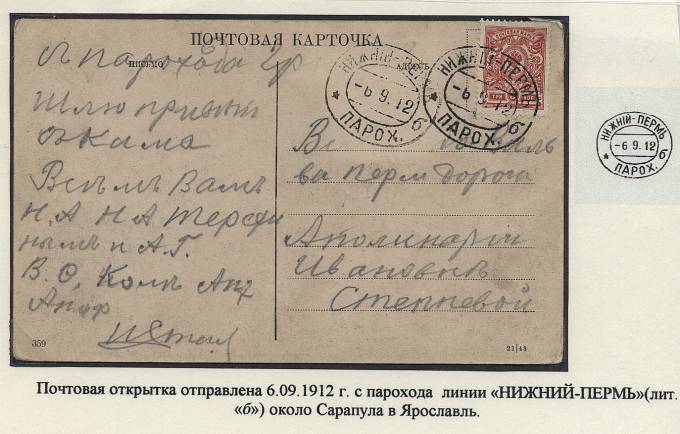 ПОЧТОВАЯ КАРТОЧКА
ПИСЬМО
АДРЕСЪ
парохода
Шлю привет
Всѣмъ Вамъ
Н.А НА
нымъ и А.Г.
В. О.
359
НИЖНІЙ-ПЕРМЬ
-6 9.12
ПАРОХ. б
НИЖНІЙ-ПЕРМЬ
-6 9.12
ПАРОХ. б
ТРИ КОП
ва перм дорога
Аполинаріи
Ивановнъ
Степневой
21|43
НИЖНІЙ-ПЕРМЬ
-6 9.12
ПАРОХ. б
Почтовая открытка отправлена 6.09.1912 г. с парохода линии «НИЖНИЙ-ПЕРМЬ»(лит.
«б») около Сарапула в Ярославль.